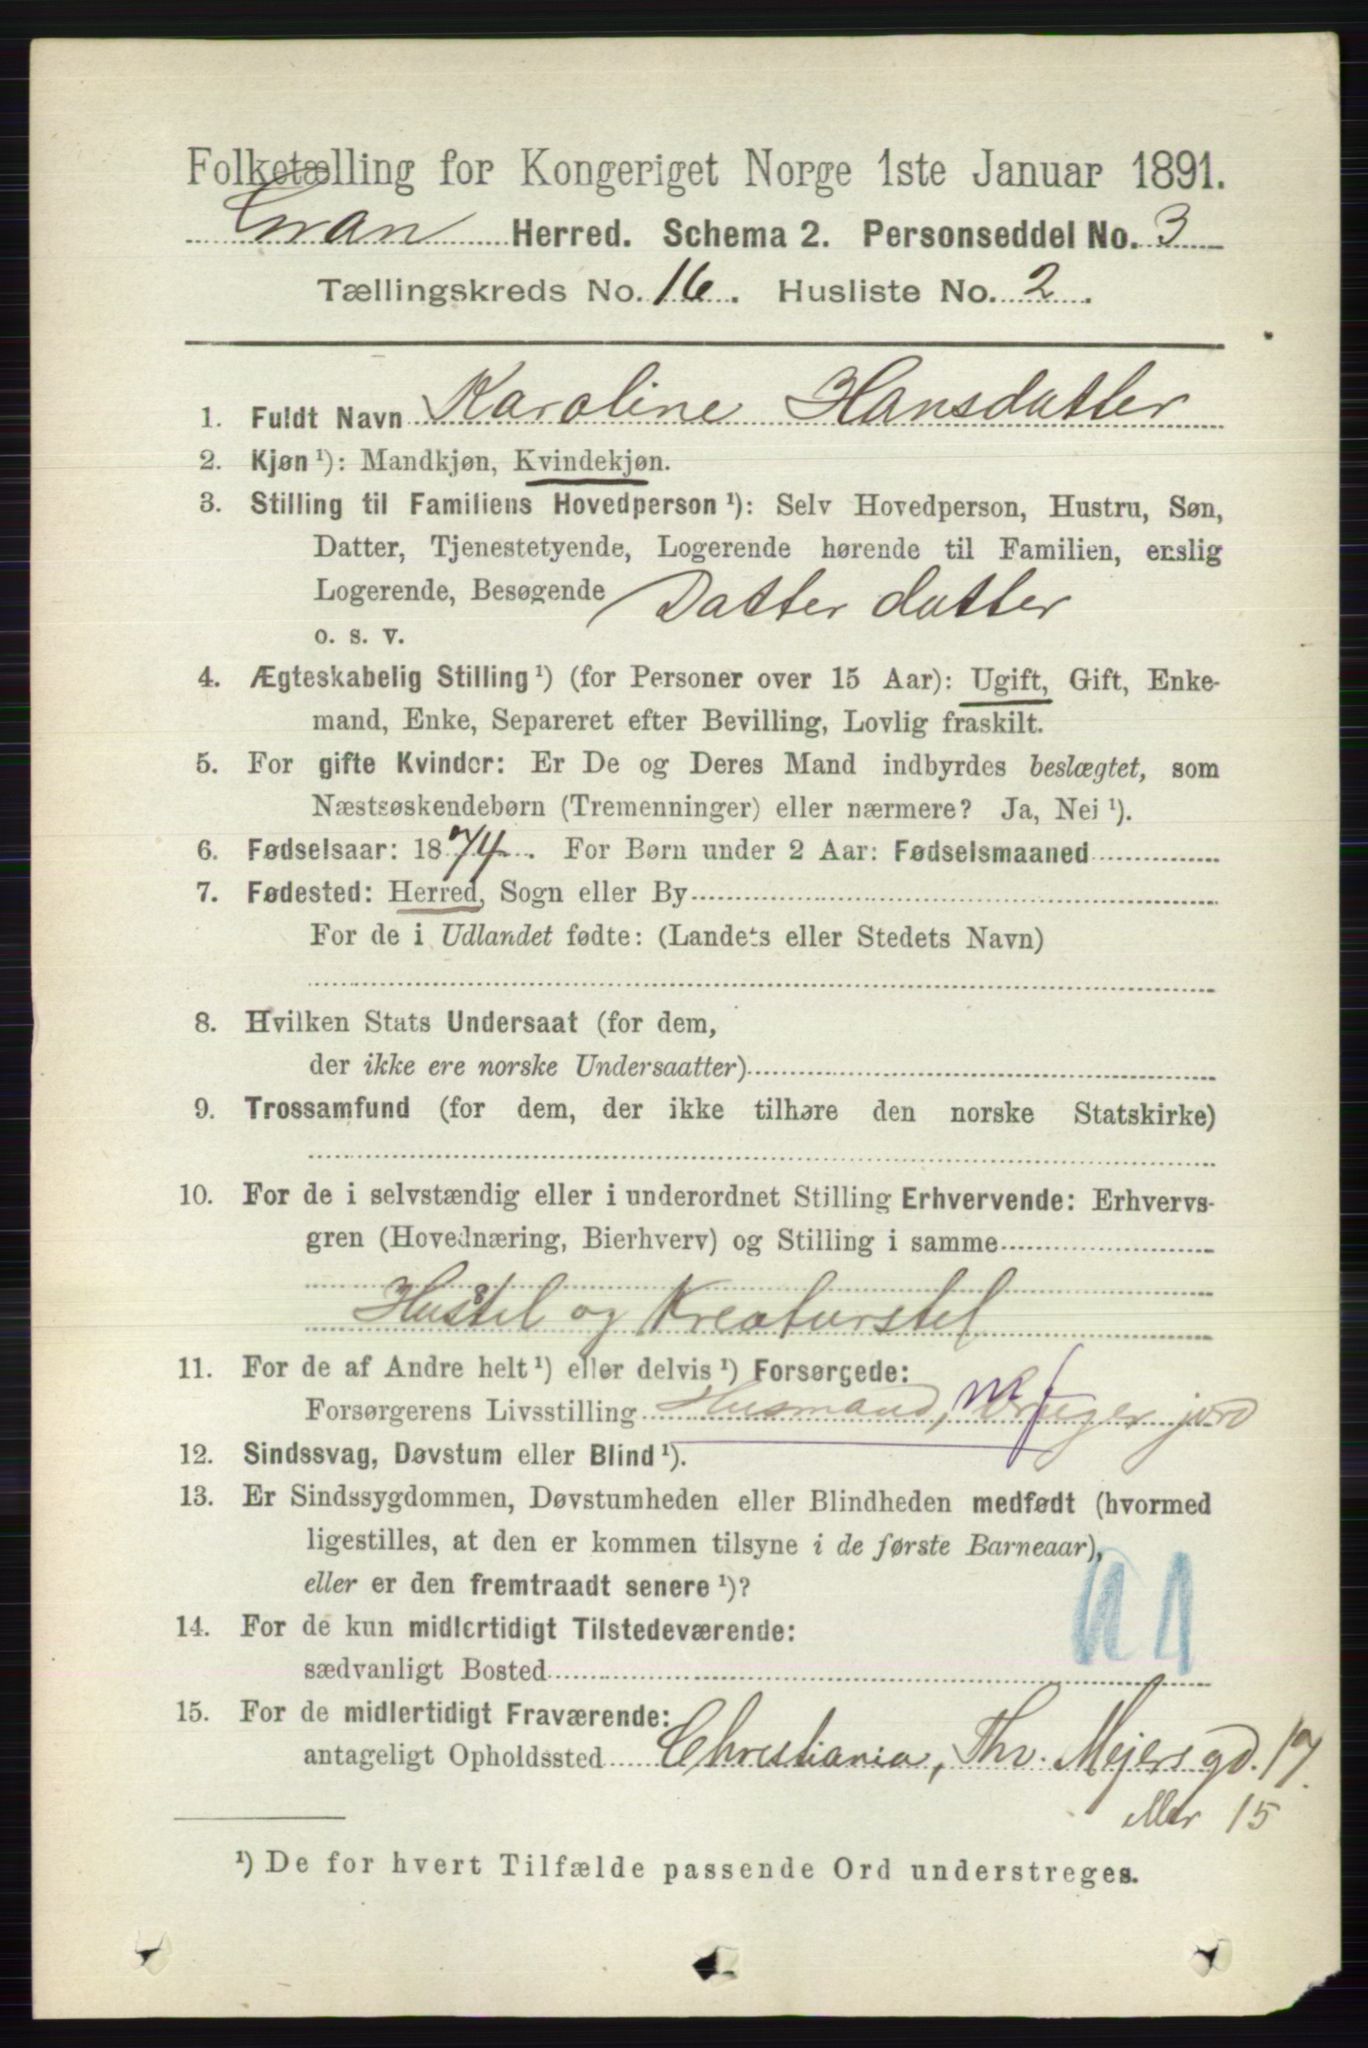 Folketælling for Kongeriget Norge 1ste Januar 1891.
Gran Herred. Schema 2. Personseddel No. 3
Tællingskreds No. 16. Husliste No. 2.
1. Fuldt Navn Karoline Hansdatter
2. Kjøn ¹): Mandkjøn, Kvindekjøn.
3. Stilling til Familiens Hovedperson ¹): Selv Hovedperson, Hustru, Søn,
Datter, Tjenestetyende, Logerende hørende til Familien, enslig
Logerende, Besøgende Datter datter
o. s. v.
4. Ægteskabelig Stilling ¹) (for Personer over 15 Aar): Ugift, Gift, Enke-
mand, Enke, Separeret efter Bevilling, Lovlig fraskilt.
5. For gifte Kvinder: Er De og Deres Mand indbyrdes beslægtet, som
Næstsøskendebørn (Tremenninger) eller nærmere? Ja, Nei ¹).
6. Fødselsaar: 1874. For Børn under 2 Aar: Fødselsmaaned
7. Fødested: Herred, Sogn eller By
For de i Udlandet fødte: (Landets eller Stedets Navn)
8. Hvilken Stats Undersaat (for dem,
der ikke ere norske Undersaatter)
9. Trossamfund (for dem, der ikke tilhøre den norske Statskirke)
10. For de i selvstændig eller i underordnet Stilling Erhvervende: Erhvervs-
gren (Hovednæring, Bierhverv) og Stilling i samme
Husstel og Kreaturstel
11. For de af Andre helt ¹) eller delvis ¹) Forsørgede:
Forsørgerens Livsstilling Husmand, Bruger jord
12. Sindssvag, Døvstum eller Blind ¹).
13. Er Sindssygdommen, Døvstumheden eller Blindheden medfødt (hvormed
ligestilles, at den er kommen tilsyne i de første Barneaar),
eller er den fremtraadt senere ¹)?
14. For de kun midlertidigt Tilstedeværende:
sædvanligt Bosted
15. For de midlertidigt Fraværende:
antageligt Opholdssted Christiania, Thv. Mejers gd. 17
eller 15
¹) De for hvert Tilfælde passende Ord understreges.